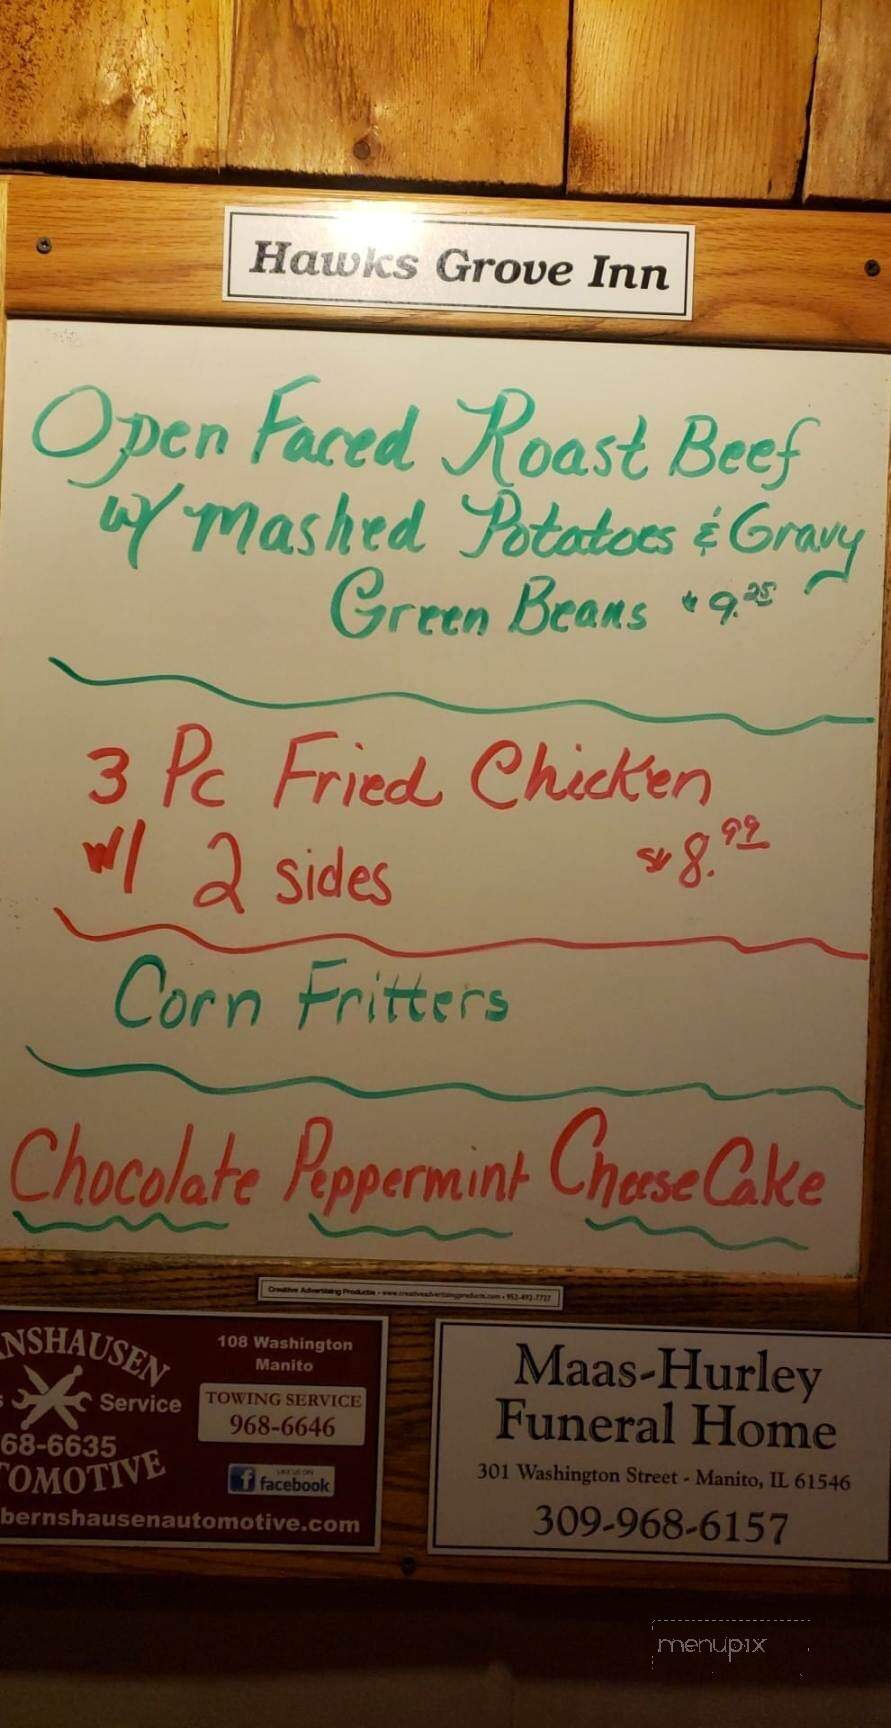 Hawks Grove Inn
Open Faced Roast Beef
w/ Mashed Potatoes & Gravy
Green Beans $9.25
3 Pc Fried Chicken
w/ 2 sides $8.99
Corn Fritters
Chocolate Peppermint Cheese Cake
Creative Advertising Products • www.creativeadvertisingproducts.com • 952-492-7727
NSHAUSEN
Service
68-6635
TOMOTIVE
108 Washington
Manito
TOWING SERVICE
968-6646
LIKE US ON
facebook
bernshausenautomotive.com
Maas-Hurley
Funeral Home
301 Washington Street - Manito, IL 61546
309-968-6157
menupix